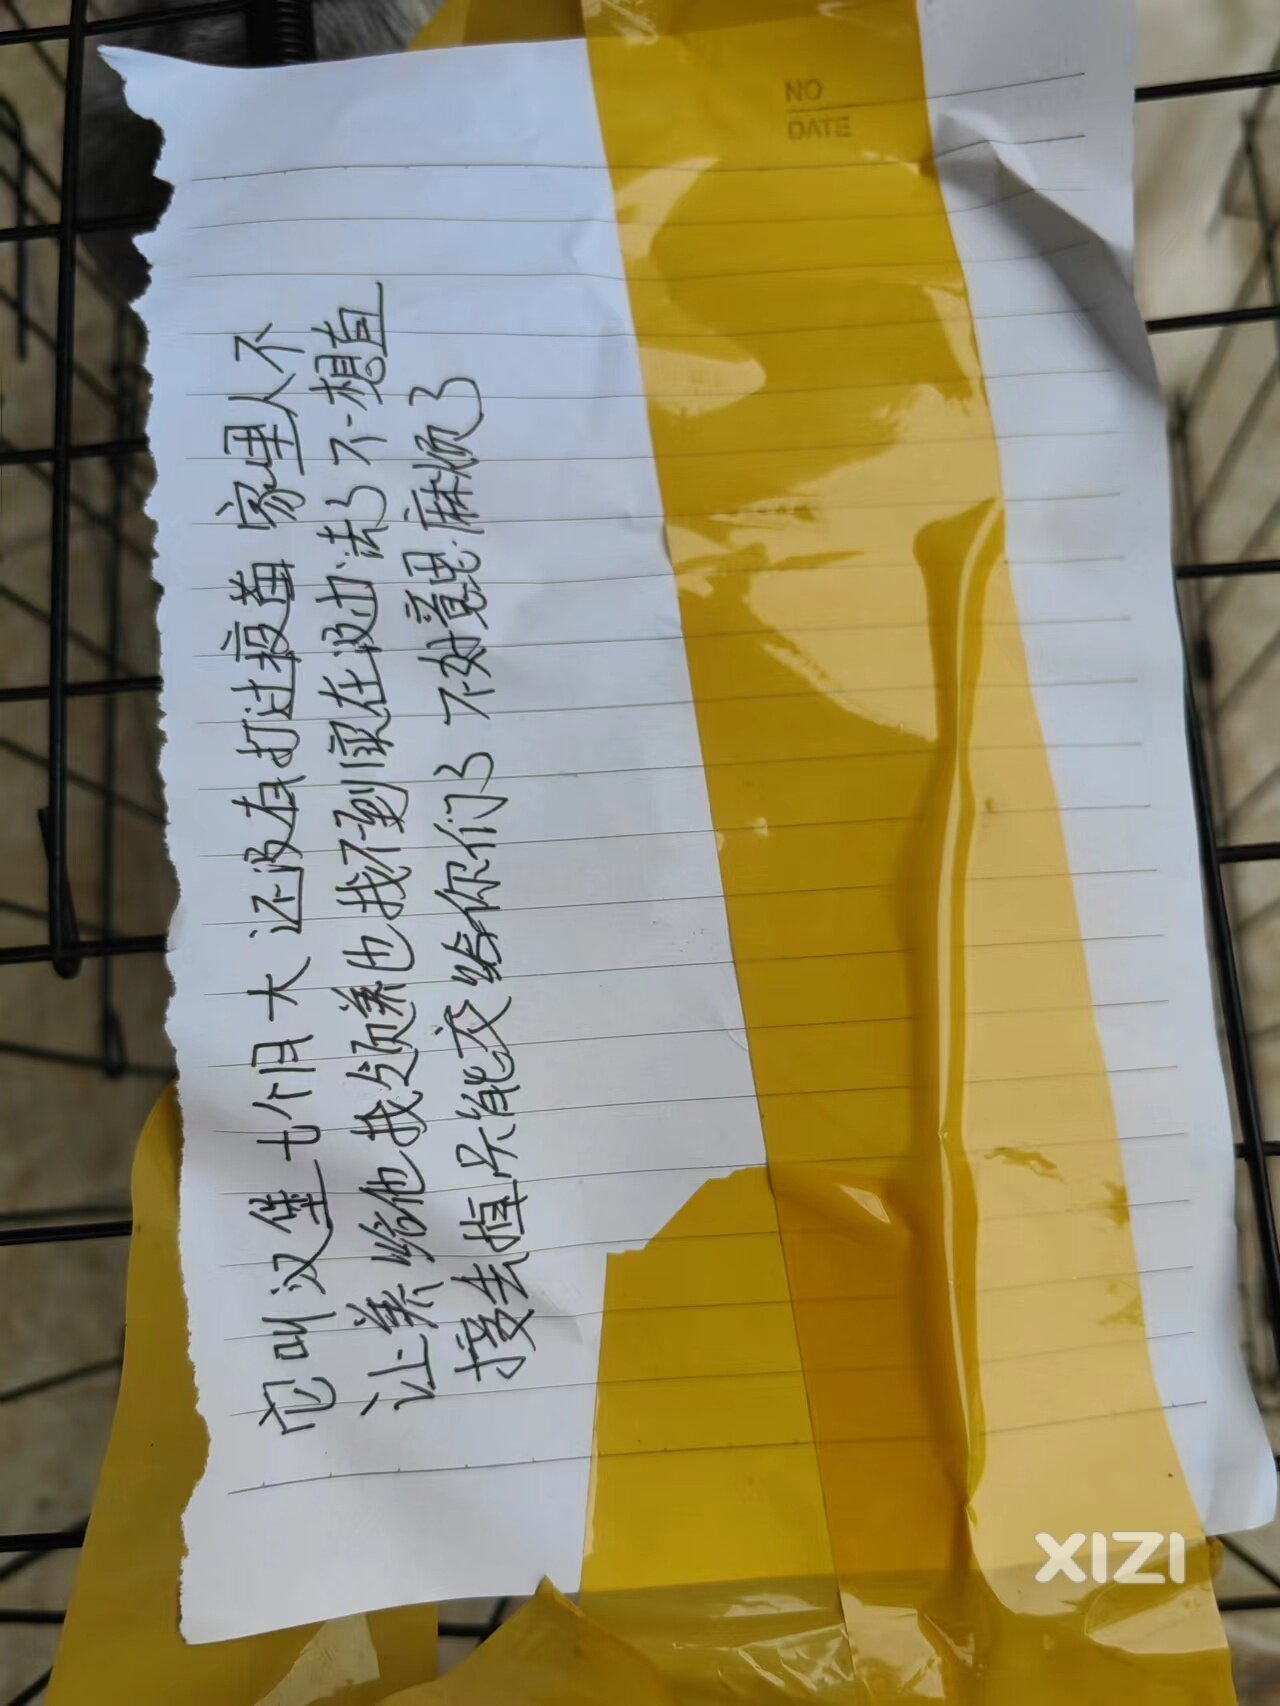 NO
DATE
它叫汉堡七个月大 还没有打过疫苗 家里人不
让养给他找领养也找不到实在没办法了不想直
接丢掉只能交给你们了 不好意思麻烦了
XIZI